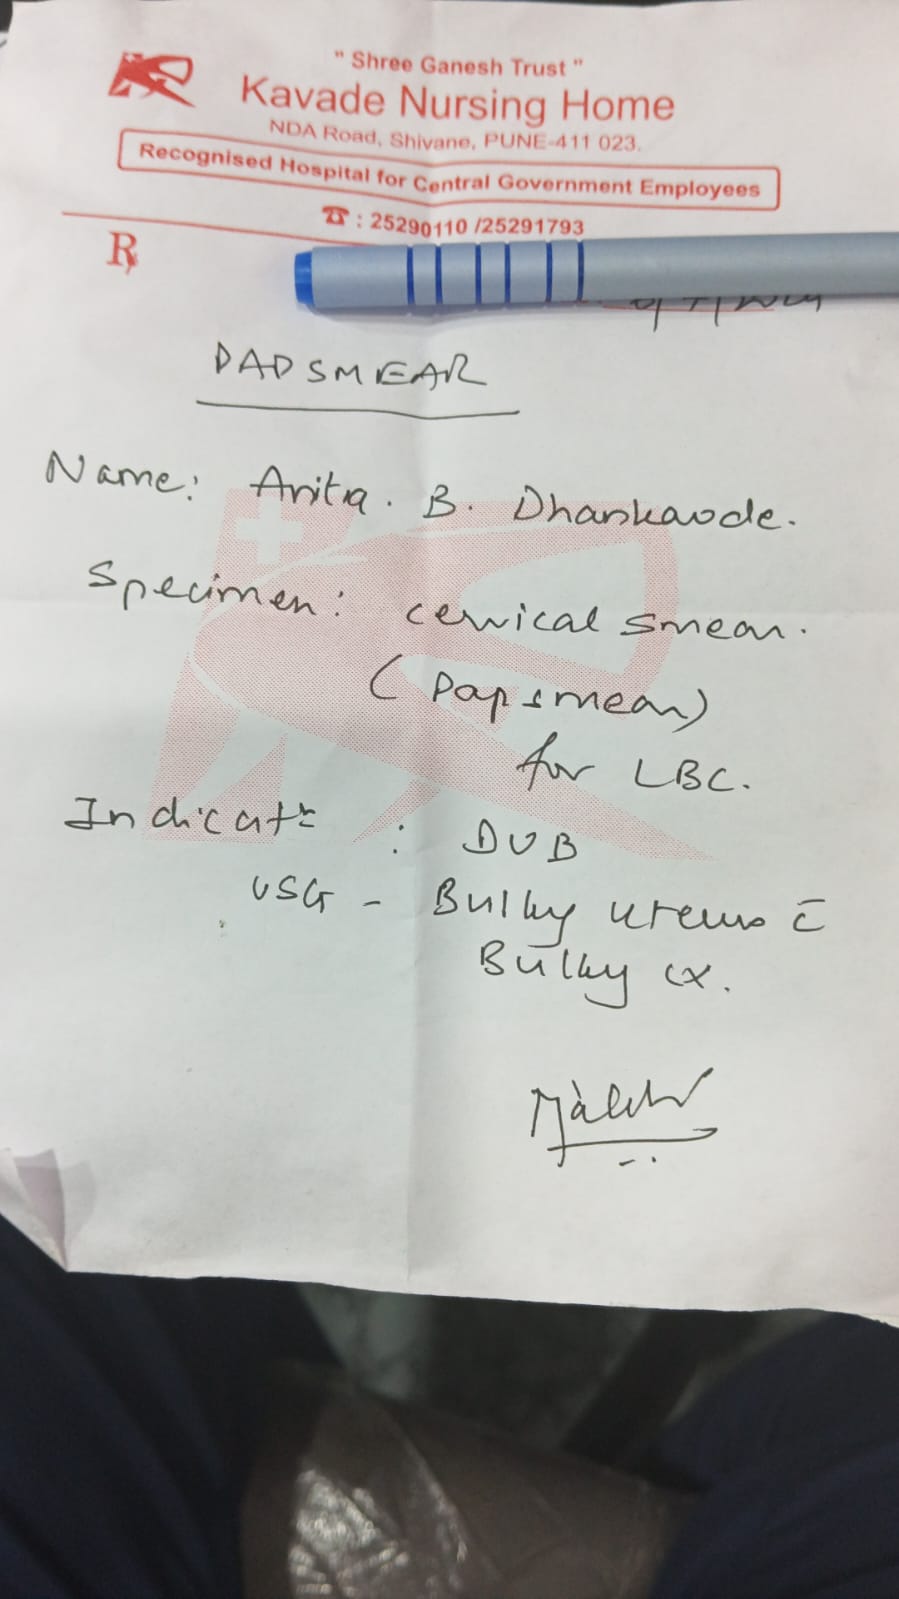 " Shree Ganesh Trust "
Kavade Nursing Home
NDA Road, Shivane, PUNE-411 023.
Recognised Hospital for Central Government Employees
☎ : 25290110 /25291793
℞
PAP SMEAR
Name: Anita . B. Dhankavde.
Specimen: cervical smear.
(Pap smear)
for LBC.
Indicatn : DUB
USG - Bulky uterus c̄
Bulky cx.